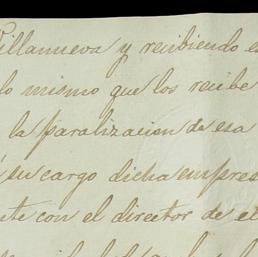 Villanueva y recibiendo e
lo mismo que los recibe
la paralizacion de esa
su cargo dicha empres
nte con el director de el